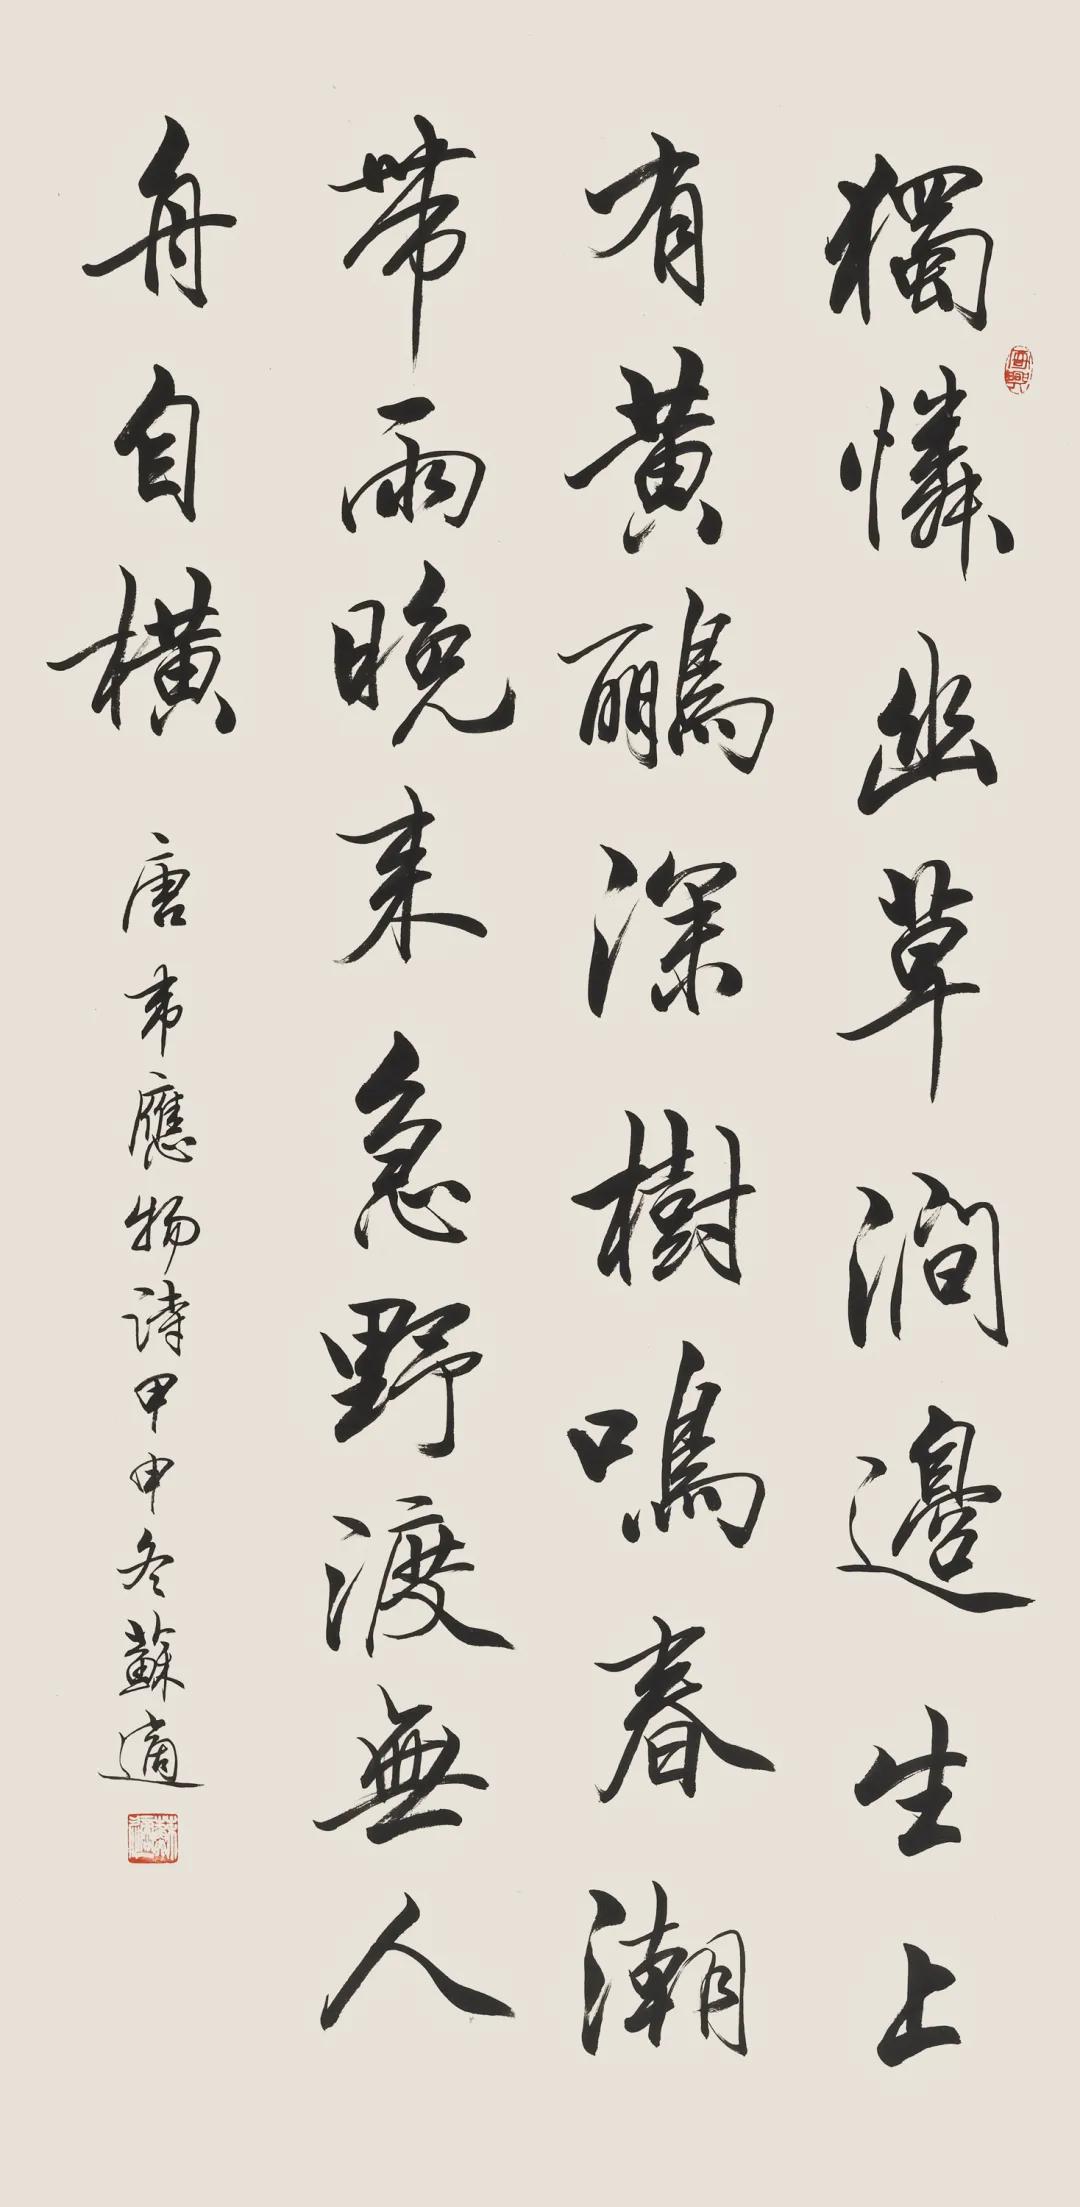 獨憐幽草澗邊生上
有黃鸝深樹鳴春潮
帶雨晚来急野渡無人
舟自橫
唐韦應物诗甲申冬蘇適